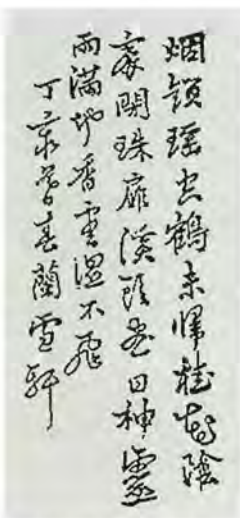 烟鎖瑶空鶴未歸桂花陰
裏閉珠扉溪頭盡日神靈
雨滿地香雲濕不飛
丁亥春蘭雪軒